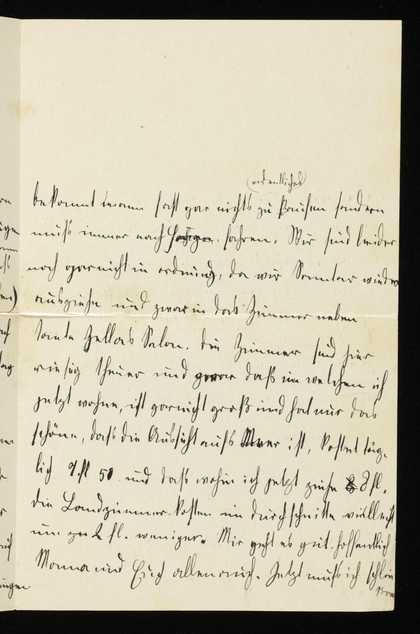 ordentliches
bekommt mann fast gar nichts zu kaufen sondern
muß immer nach fahren. Wir sind leider
noch gar nicht in ordnung, da wir Sonntag wieder
ausziehn und zwar in das Zimmer neben
Tante Jellas Salon. Die Zimmer sind hier
riesig theuer und zwar daß in welchem ich
jetzt wohne, ist gar nicht groß und hat nur das
schöne, daß die Aussicht aufs Meer ist, kostet täg-
lich 7 fl 50 und daß wohin ich jetzt ziehe 8 fl.
die Landzimmer kosten im durchschnitt vielleicht
um 2 fl. weniger. Mir geht es gut. hoffentlich
Mama und Euch allen auch. Jetzt muß ich